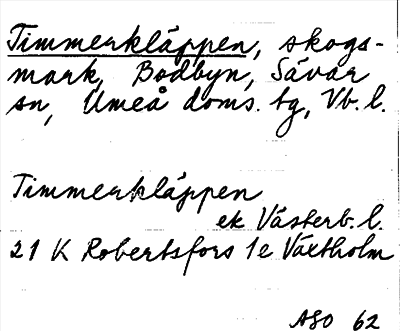 Timmerkläppen, skogs-
mark, Bodbyn, Sävar
sn, Umeå doms. tg, Vb. l.
Timmerkläppen
ek Västerb. l.
21 K Robertsfors 1e Vaxtholm
ASO 62